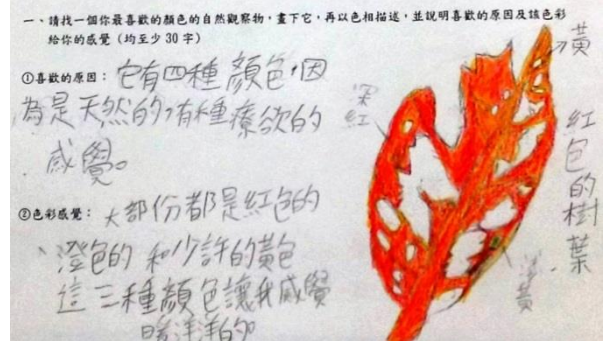 一、請找一個你最喜歡的顏色的自然觀察物，畫下它，再以色相描述，並說明喜歡的原因及該色彩
給你的感覺（均至少 30 字）
①喜歡的原因：它有四種顏色，因
為是天然的，有種療欲的
感覺。
②色彩感覺：大部份都是紅色的
、澄色的 和少許的黃色
這三種顏色讓我感覺
暖洋洋的。
黃
深紅
紅色的樹葉
淺黃